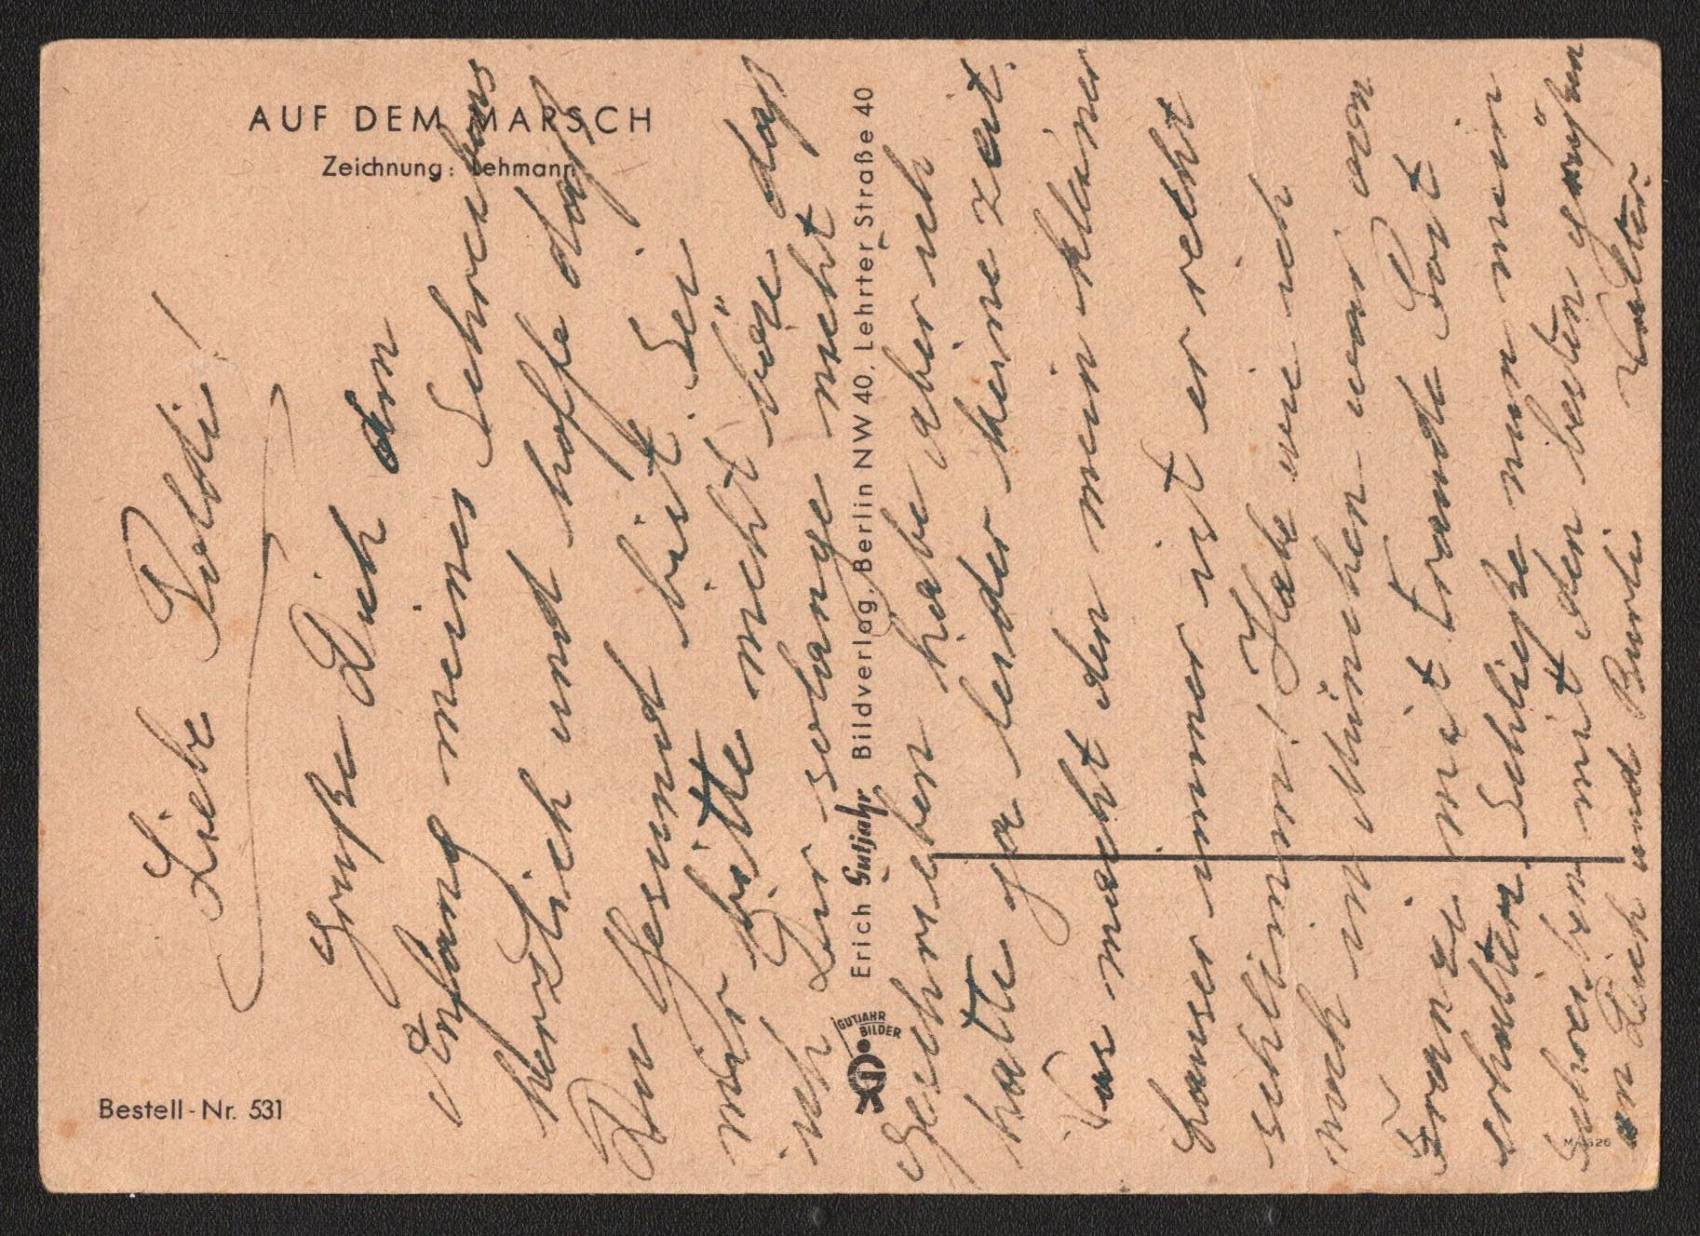 AUF DEM MARSCH
Zeichnung: Lehmann
Bestell-Nr. 531
Erich Gutjahr Bildverlag, Berlin NW 40, Lehrter Straße 40
GUTJAHR
BILDER
Liebe Poldi!
Grüße Dich am
Anfang meines Schreibens
herzlich und hoffe daß
Du Gesund bist. Sei
mir bitte nicht böse daß
ich Dir solange nicht
geschrieben habe aber ich
hatte ja leider keine Zeit.
Was macht den mein kleiner
Lauser immer ist er recht
schlimm! Habe wie ich
noch in München war von
Franzi mit Freude Post
erhalten. Schließe nun mein
Schreiben mit den besten Grüßen
an Dich und Burli